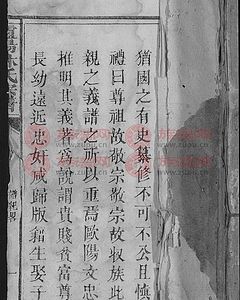 猶國之有史纂修不可不公且慎
禮曰尊祖故敬宗敬宗故收族此
親之義譜之所以重焉歐陽文忠
推明其義著為說謂貴賤貧富尊
長幼遠近忠好咸歸版稽生娶子
宗譜